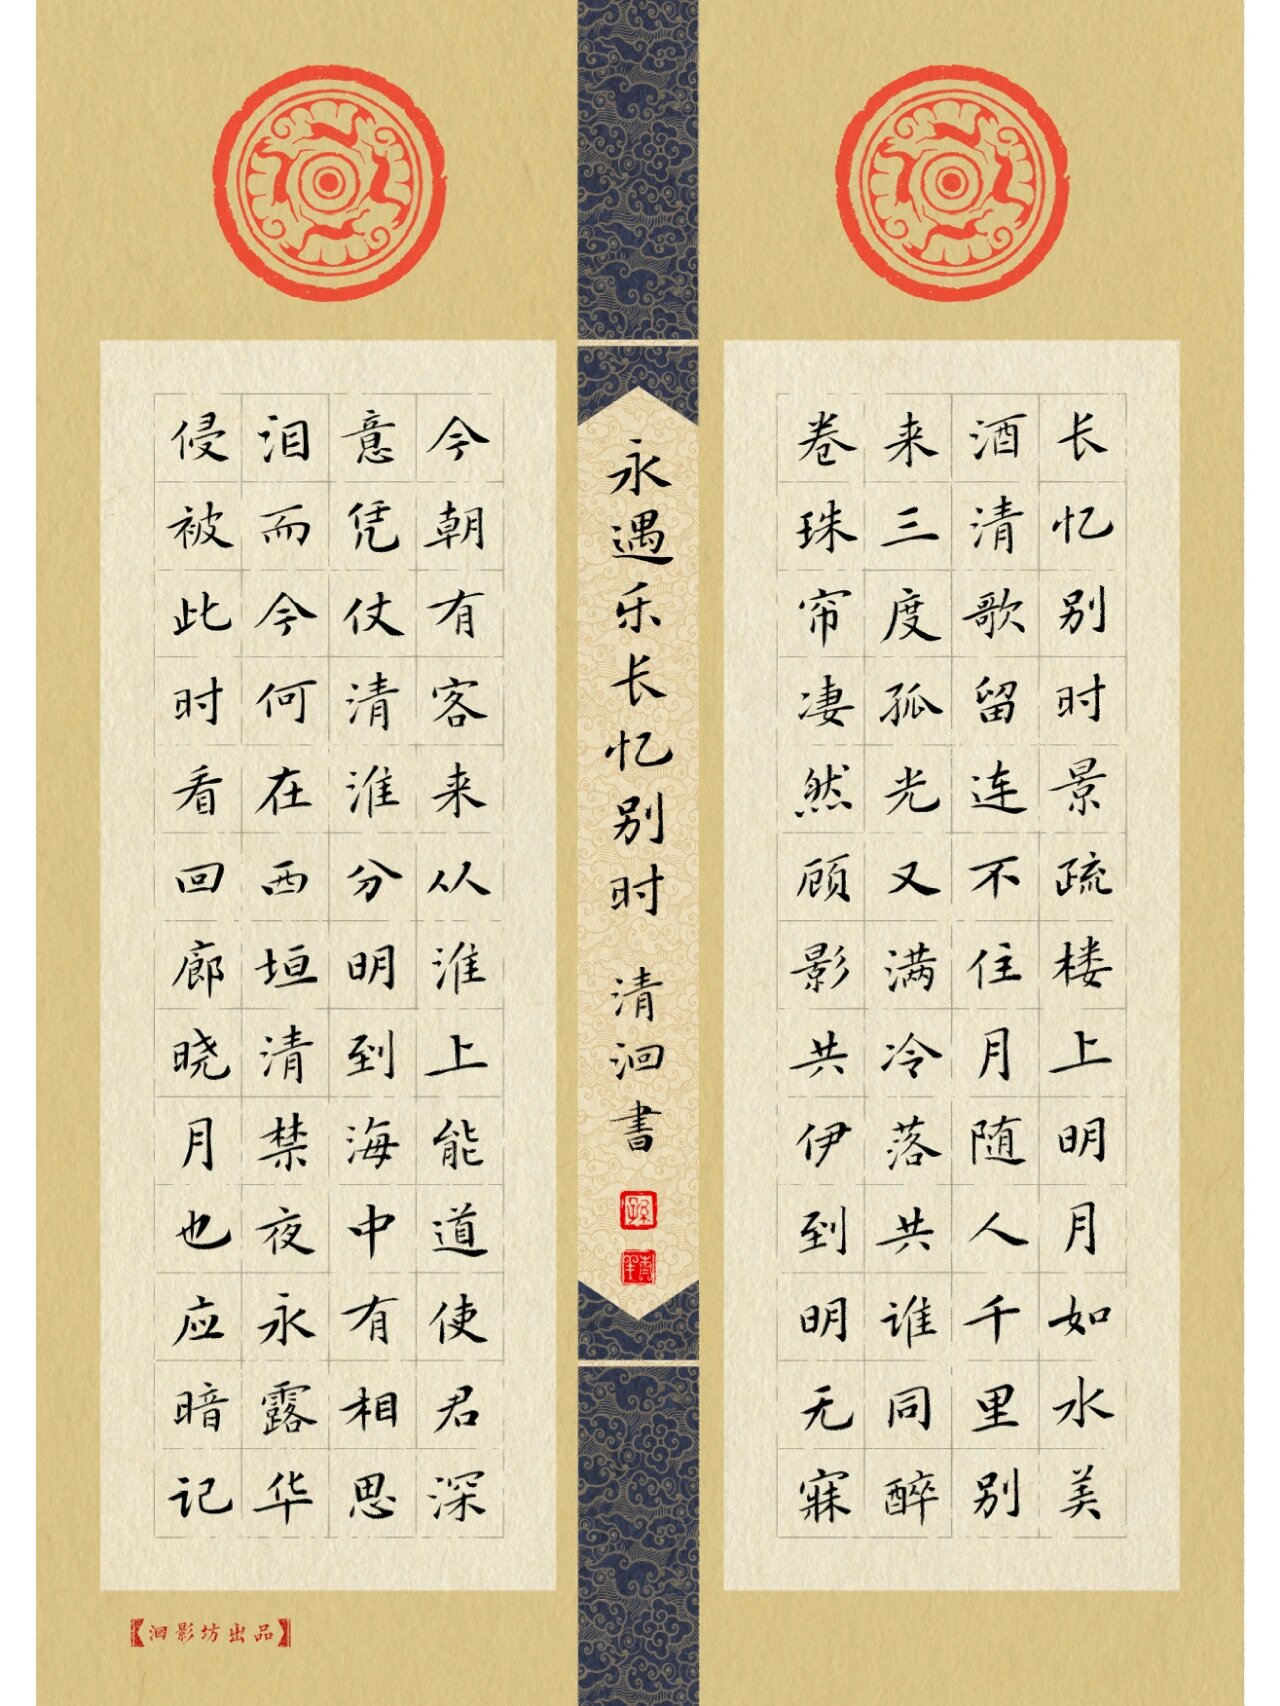 长忆别时景疏楼上明月如水美
酒清歌留连不住月随人千里别
来三度孤光又满冷落共谁同醉
卷珠帘凄然顾影共伊到明无寐
永遇乐长忆别时 清洄書
今朝有客来从淮上能道使君深
意凭仗清淮分明到海中有相思
泪而今何在西垣清禁夜永露华
侵被此时看回廊晓月也应暗记
【洄影坊出品】